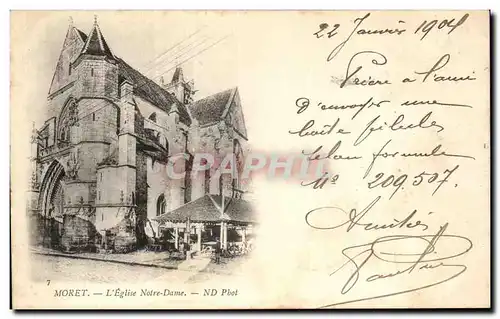 22 Janvier 1904
Prière à l'ami
D'envoyer une
boite pilules
selon formule
N° 209.507.
Amitiés
CPA-PHIL
7
MORET. — L'Église Notre-Dame. — ND Phot